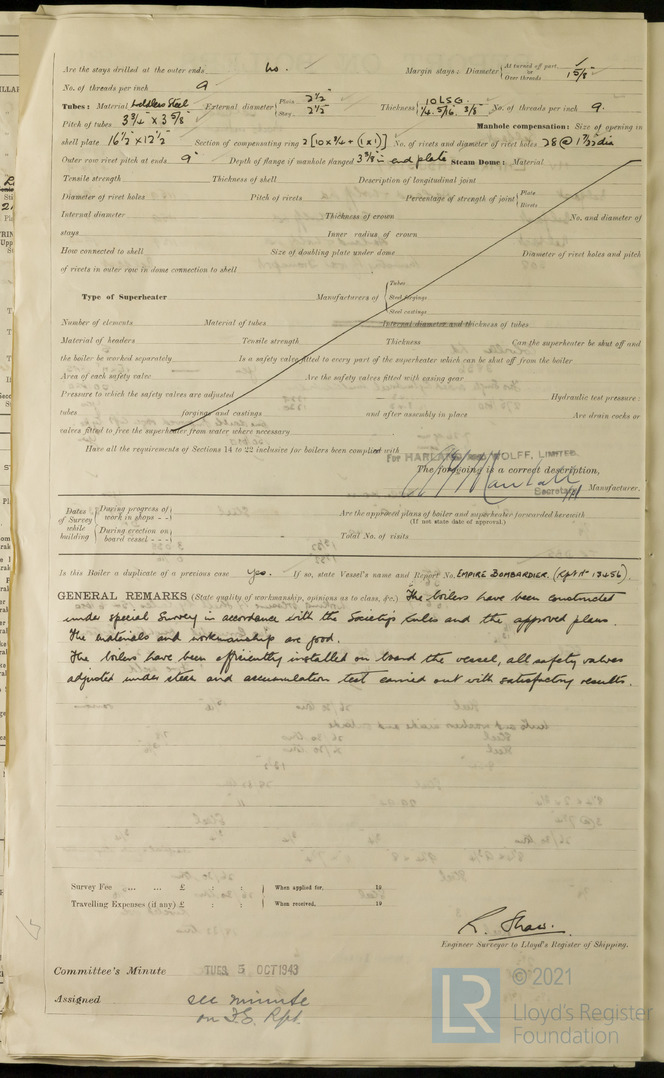 Are the stays drilled at the outer ends No. Margin stays: Diameter { At turned off part, or Over threads 1 5/8"
No. of threads per inch 9
Tubes: Material Weldless Steel External diameter { Plain 2 1/2" Stay 2 1/2" Thickness { 10 LSG. 1/4. 5/16. 3/8" No. of threads per inch 9.
Pitch of tubes 3 3/4" x 3 5/8" Manhole compensation: Size of opening in
shell plate 16 1/2" x 12 1/2" Section of compensating ring 2[10 x 3/4 + (1 x 1)] No. of rivets and diameter of rivet holes 28 @ 1 7/32 dia
Outer row rivet pitch at ends 9" Depth of flange if manhole flanged 3 3/8" in end plate Steam Dome: Material
Tensile strength Thickness of shell Description of longitudinal joint
Diameter of rivet holes Pitch of rivets Percentage of strength of joint { Plate Rivets
Internal diameter Thickness of crown No. and diameter of
stays Inner radius of crown
How connected to shell Size of doubling plate under dome Diameter of rivet holes and pitch
of rivets in outer row in dome connection to shell
Type of Superheater Manufacturers of { Tubes Steel forgings Steel castings
Number of elements Material of tubes Internal diameter and thickness of tubes
Material of headers Tensile strength Thickness Can the superheater be shut off and
the boiler be worked separately Is a safety valve fitted to every part of the superheater which can be shut off from the boiler
Area of each safety valve Are the safety valves fitted with easing gear
Pressure to which the safety valves are adjusted Hydraulic test pressure:
tubes forgings and castings and after assembly in place Are drain cocks or
valves fitted to free the superheater from water where necessary
Have all the requirements of Sections 14 to 22 inclusive for boilers been complied with
For HARLAND AND WOLFF, LIMITED.
The foregoing is a correct description,
Secretary Manufacturer.
Dates of Survey while building { During progress of work in shops - - } Are the approved plans of boiler and superheater forwarded herewith
(If not state date of approval.)
{ During erection on board vessel - - - } Total No. of visits
Is this Boiler a duplicate of a previous case yes. If so, state Vessel's name and Report No. EMPIRE BOMBARDIER. (Rpt No 13456).
GENERAL REMARKS (State quality of workmanship, opinions as to class, &c.) The boilers have been constructed
under special Survey in accordance with the Society's Rules and the approved plans.
The materials and workmanship are good.
The boilers have been efficiently installed on board the vessel, all safety valves
adjusted under steam and accumulation test carried out with satisfactory results.
Survey Fee ... ... £ : : } When applied for, 19
Travelling Expenses (if any) £ : : } When received, 19
R. Shaw.
Engineer Surveyor to Lloyd's Register of Shipping.
Committee's Minute TUES 5 OCT 1943
Assigned see minute
on F.E. Rpt.
© 2021
LR Lloyd's Register
Foundation